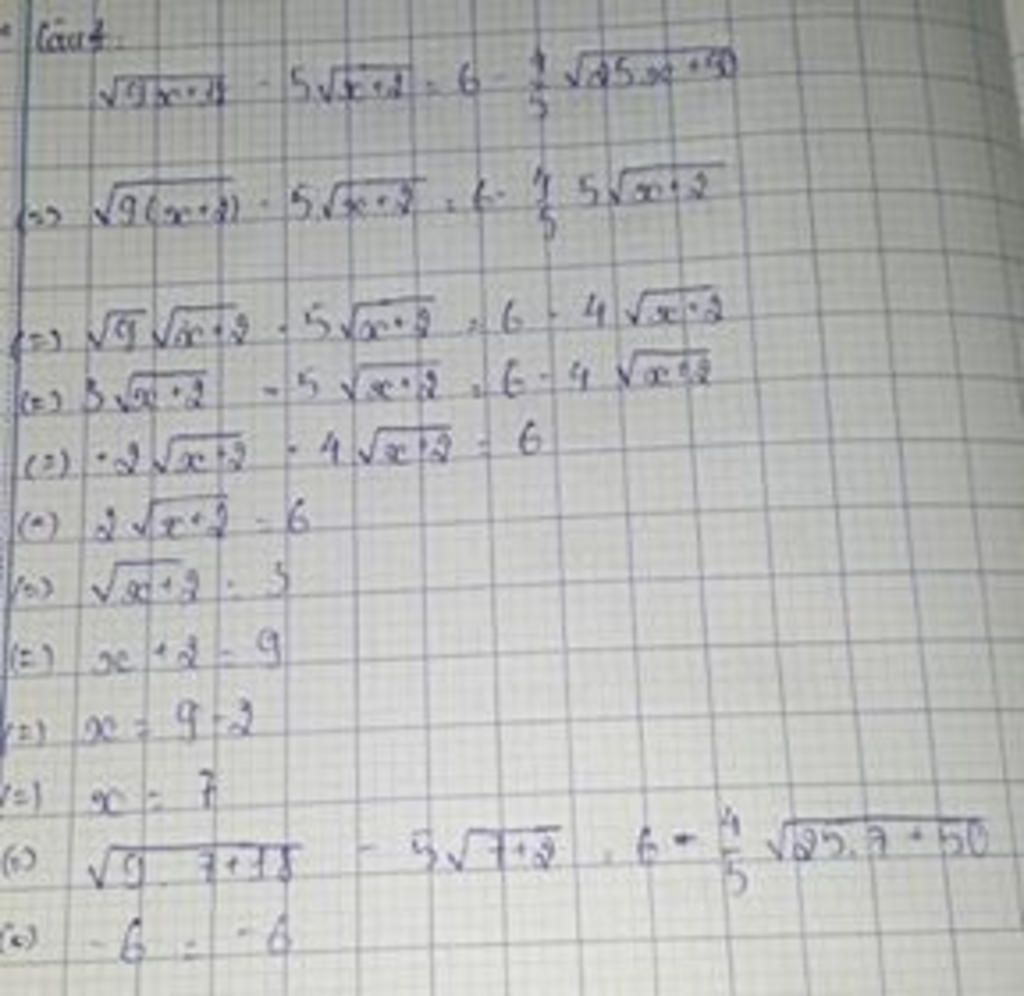 Câu 1:
√(9x+18) - 5√(x+2) = 6 - 4/5 √(25x+50)
(=) √(9(x+2)) - 5√(x+2) = 6 - 4/5 5√(x+2)
(=) √9 √(x+2) - 5√(x+2) = 6 - 4√(x+2)
(=) 3√(x+2) - 5√(x+2) = 6 - 4√(x+2)
(=) -2√(x+2) - 4√(x+2) = 6
(=) 2√(x+2) = 6
(=) √(x+2) = 3
(=) x+2 = 9
(=) x = 9-2
(=) x = 7
(=) √(9.7+18) - 5√(7+2) = 6 - 4/5 √(25.7+50)
(=) -6 = -6